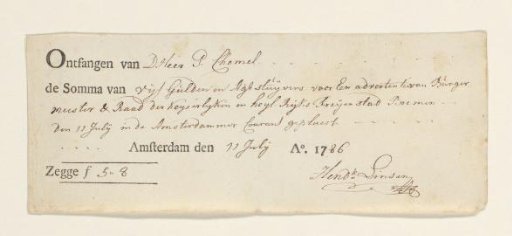 Ontfangen van D'Heer P Chomel
de Somma van Vijf Guldens en Agt Stuyvers voor Een advertentie van Burger
meister & Raad der keyserlyken en heyl Rijks Freijen stad
den 11 Julij in de Amsterdammer Courant geplaest
Amsterdam den 11 Julij Aº. 1786
Zegge f 5-8
Hendk